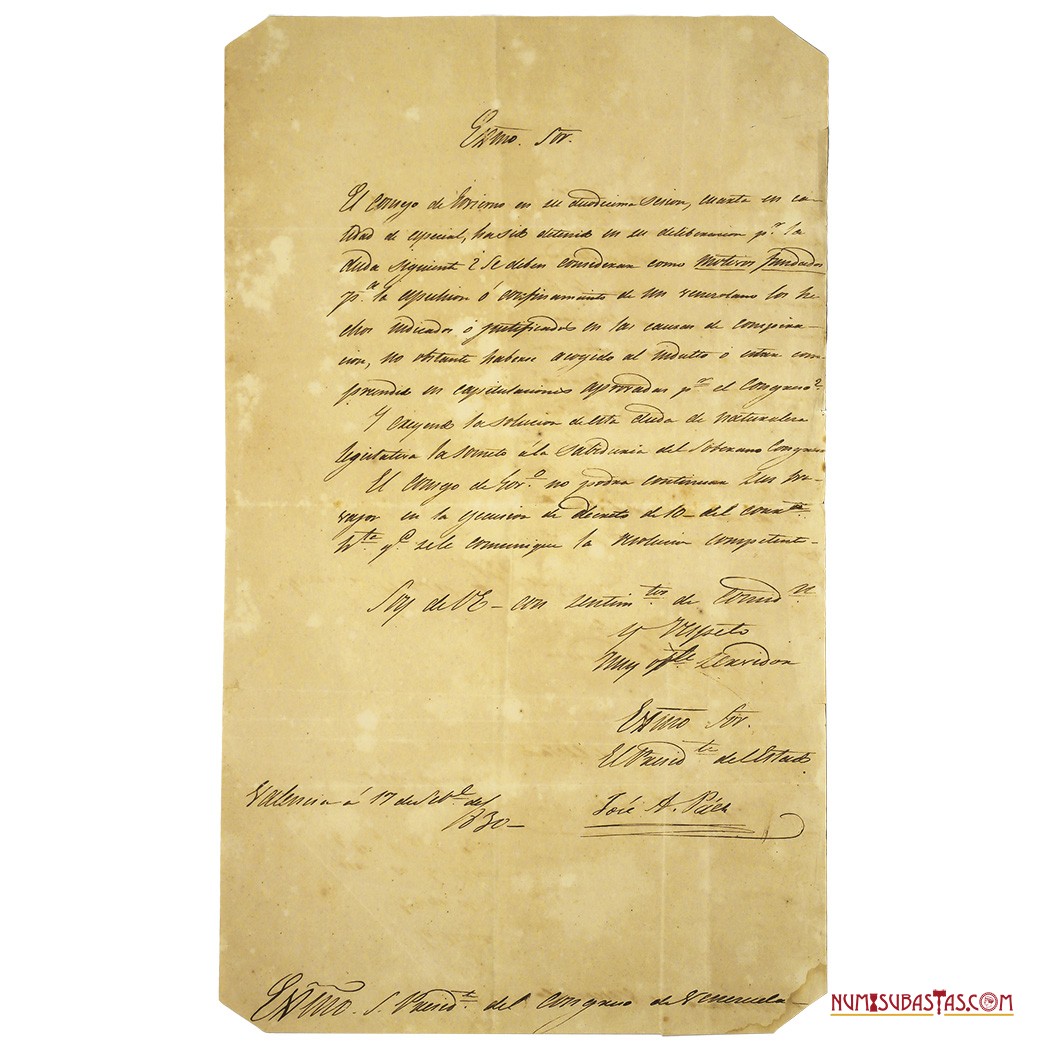 Exmo. Sor.
El Consejo de Govierno en su duodecima sesion, cuarta en ca-
lidad de especial, ha sido detenido en su deliberacion pr. la
duda siguiente? Se deben considerar como motivos fundados
pa. la expulsion ó confinamiento de un venezolano los he-
chos indicados ó justificados en las causas de conspira-
cion, no obstante haberse acogido al indulto ó estar com-
prendido en capitulaciones aprovadas pr. el Congreso?
Y creyendo la solucion de esta duda de naturaleza
legislativa la somete á la Sabiduria del Soberano Congreso
El Consejo de Govo. no podra continuar sus tra-
vajos en la ejecucion de decreto de 10 del
hta. qe. se le comunique la resolucion competente-
Soy de VE- con sentimtos. de
y respeto
muy obte. servidor
Exmo Sor.
El Presidte. del Estado
José A. Páez
Valencia á 17 de del
1830-
Exmo. S. Presidte. del Congreso de Venezuela-
NUMISUBASTAS.COM